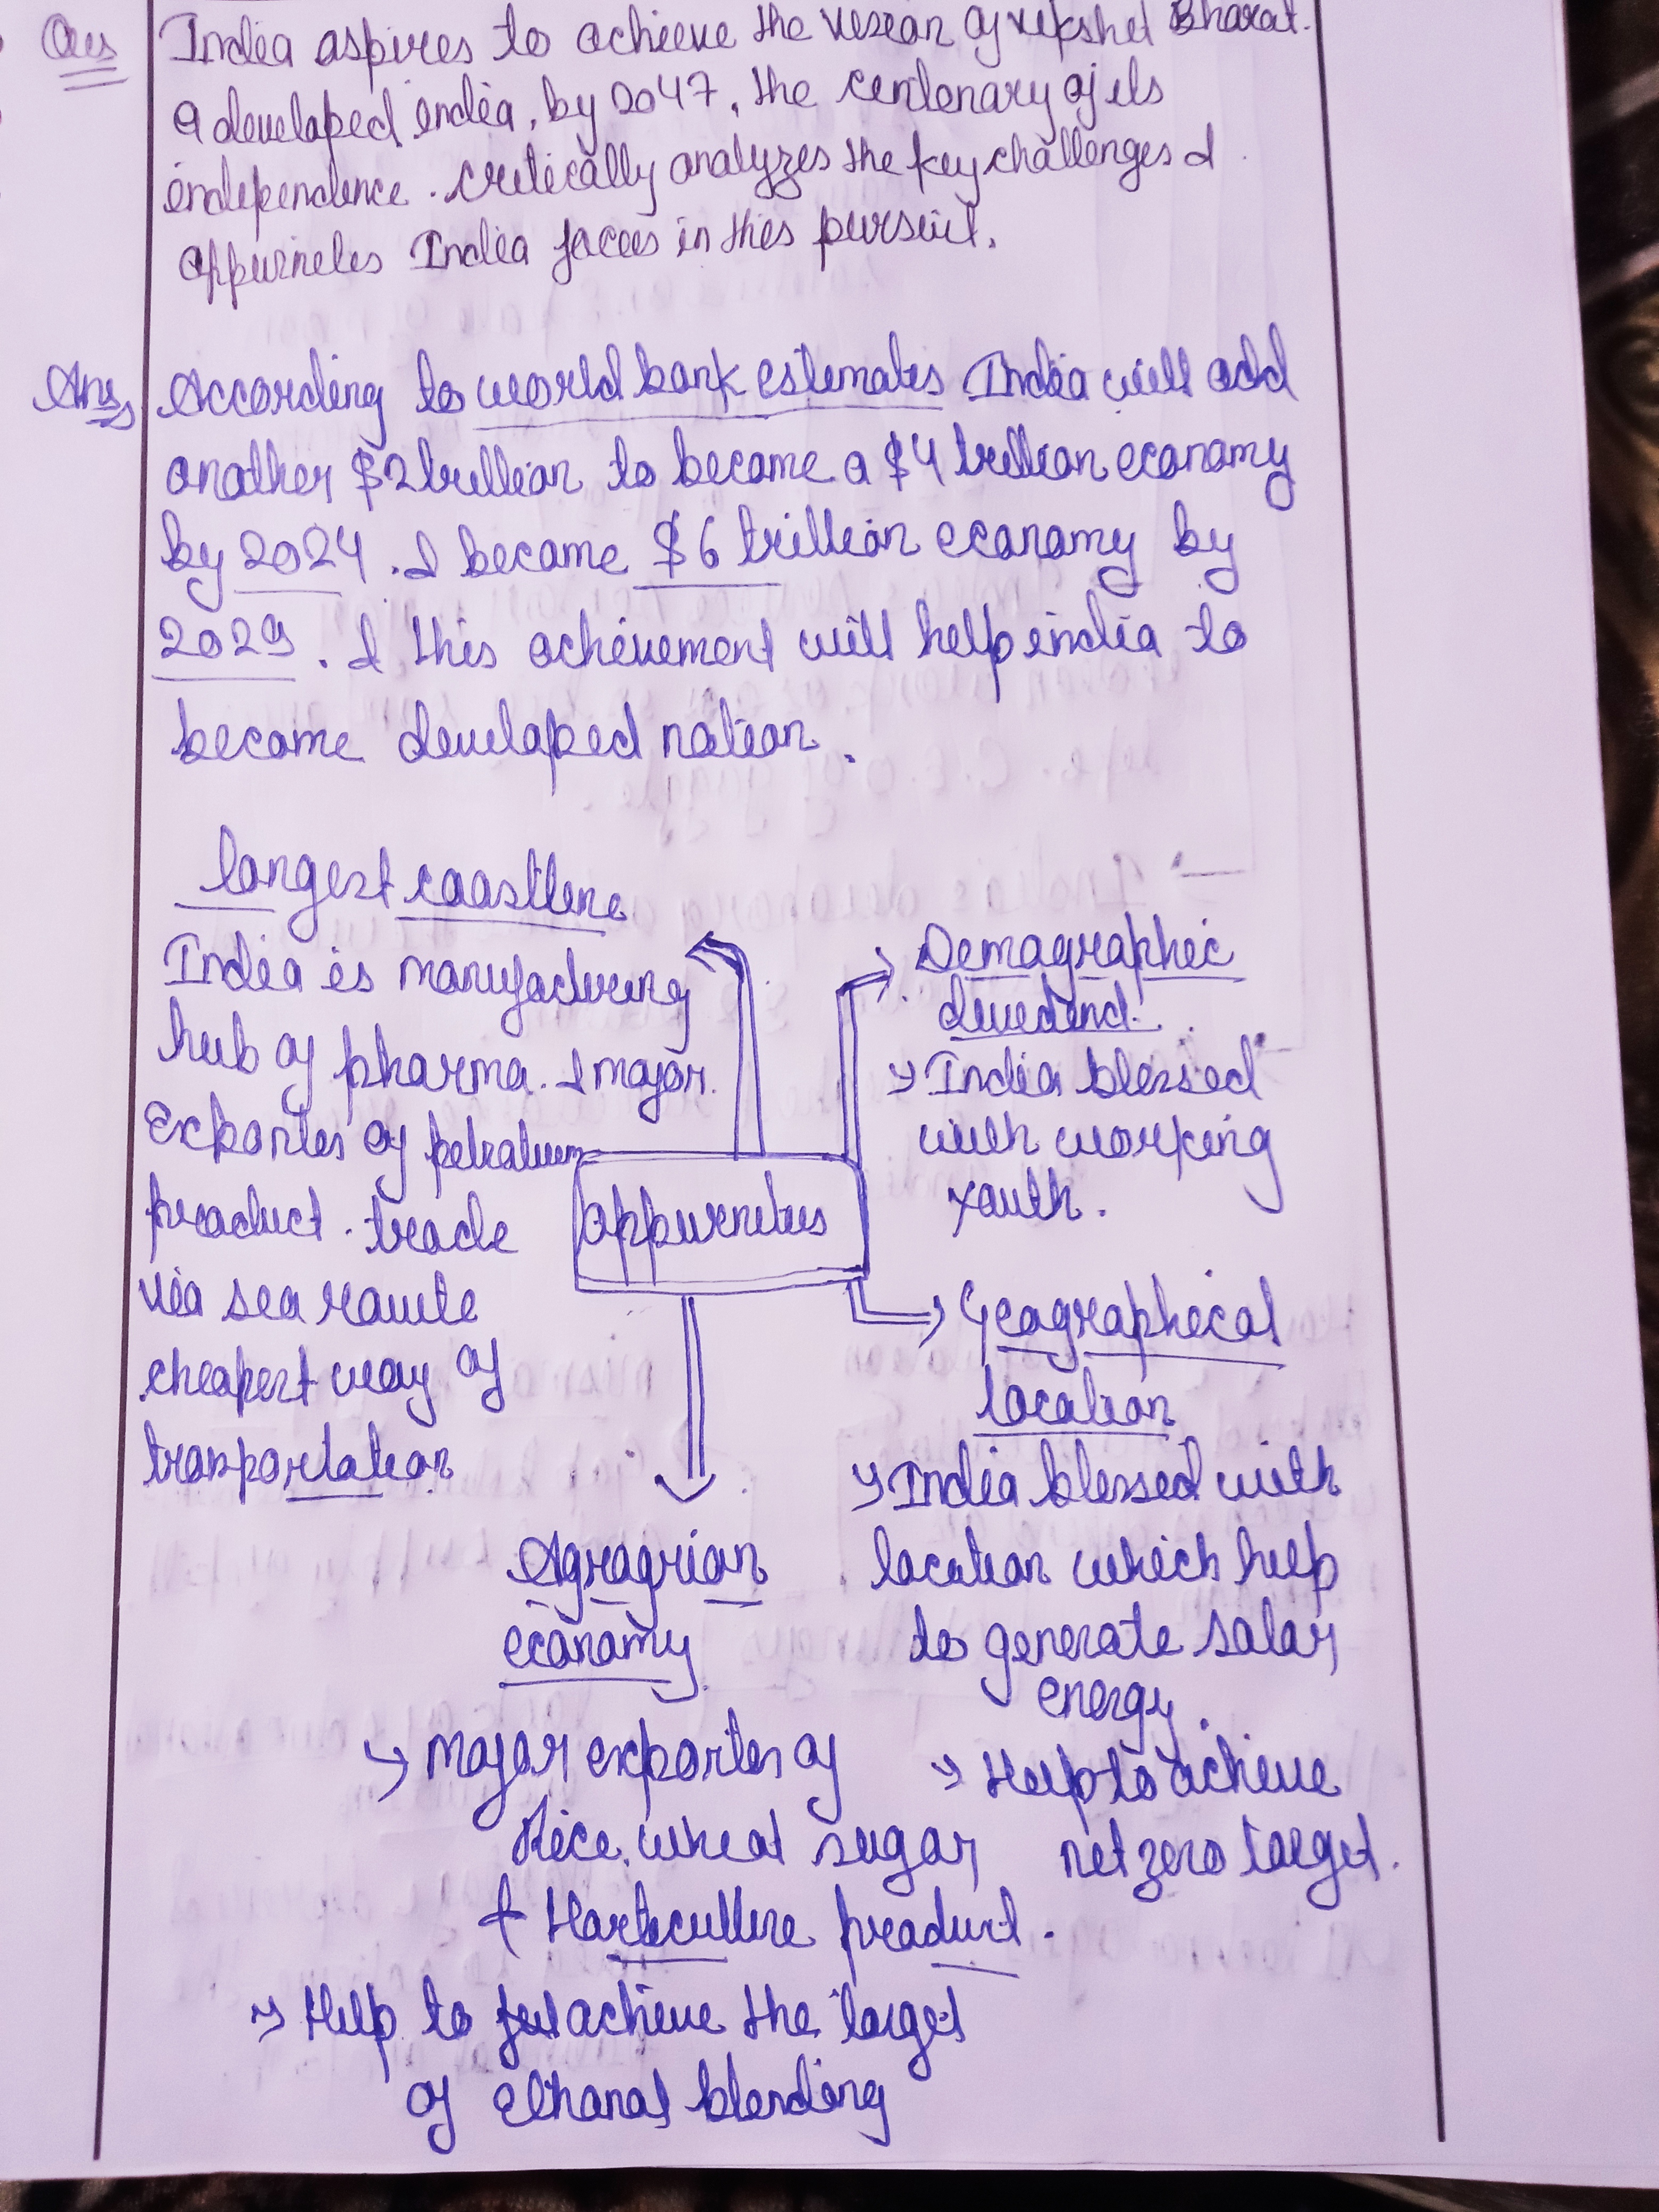 Ques India aspires to achieve the vision of vikshit Bharat.
a developed india, by 2047, the centenary of its
independence. critically analyzes the key challenges &
oppurneties India faces in this pursuit.
Ans, According to world bank estimates India will add
another $2 trillion to become a $4 trillion economy
by 2024. & become $6 trillion economy by
2029. & this achievement will help india to
become developed nation.
longest coastline
India is manufacturing
hub of pharma. & major
Exporter of petroleum
product. trade
via sea route
cheapest way of
trasportation
Demographic
dividend.
→ India blessed
with working
youth.
oppurneties
Geographical
location
→ India blessed with
location which help
to generate solar
energy.
→ Help to achieve
net zero target.
Agragrian
economy
→ major exporter of
Rice, wheat sugar
+ Horticulture product.
→ Help to achieve the target
of ethanol blending